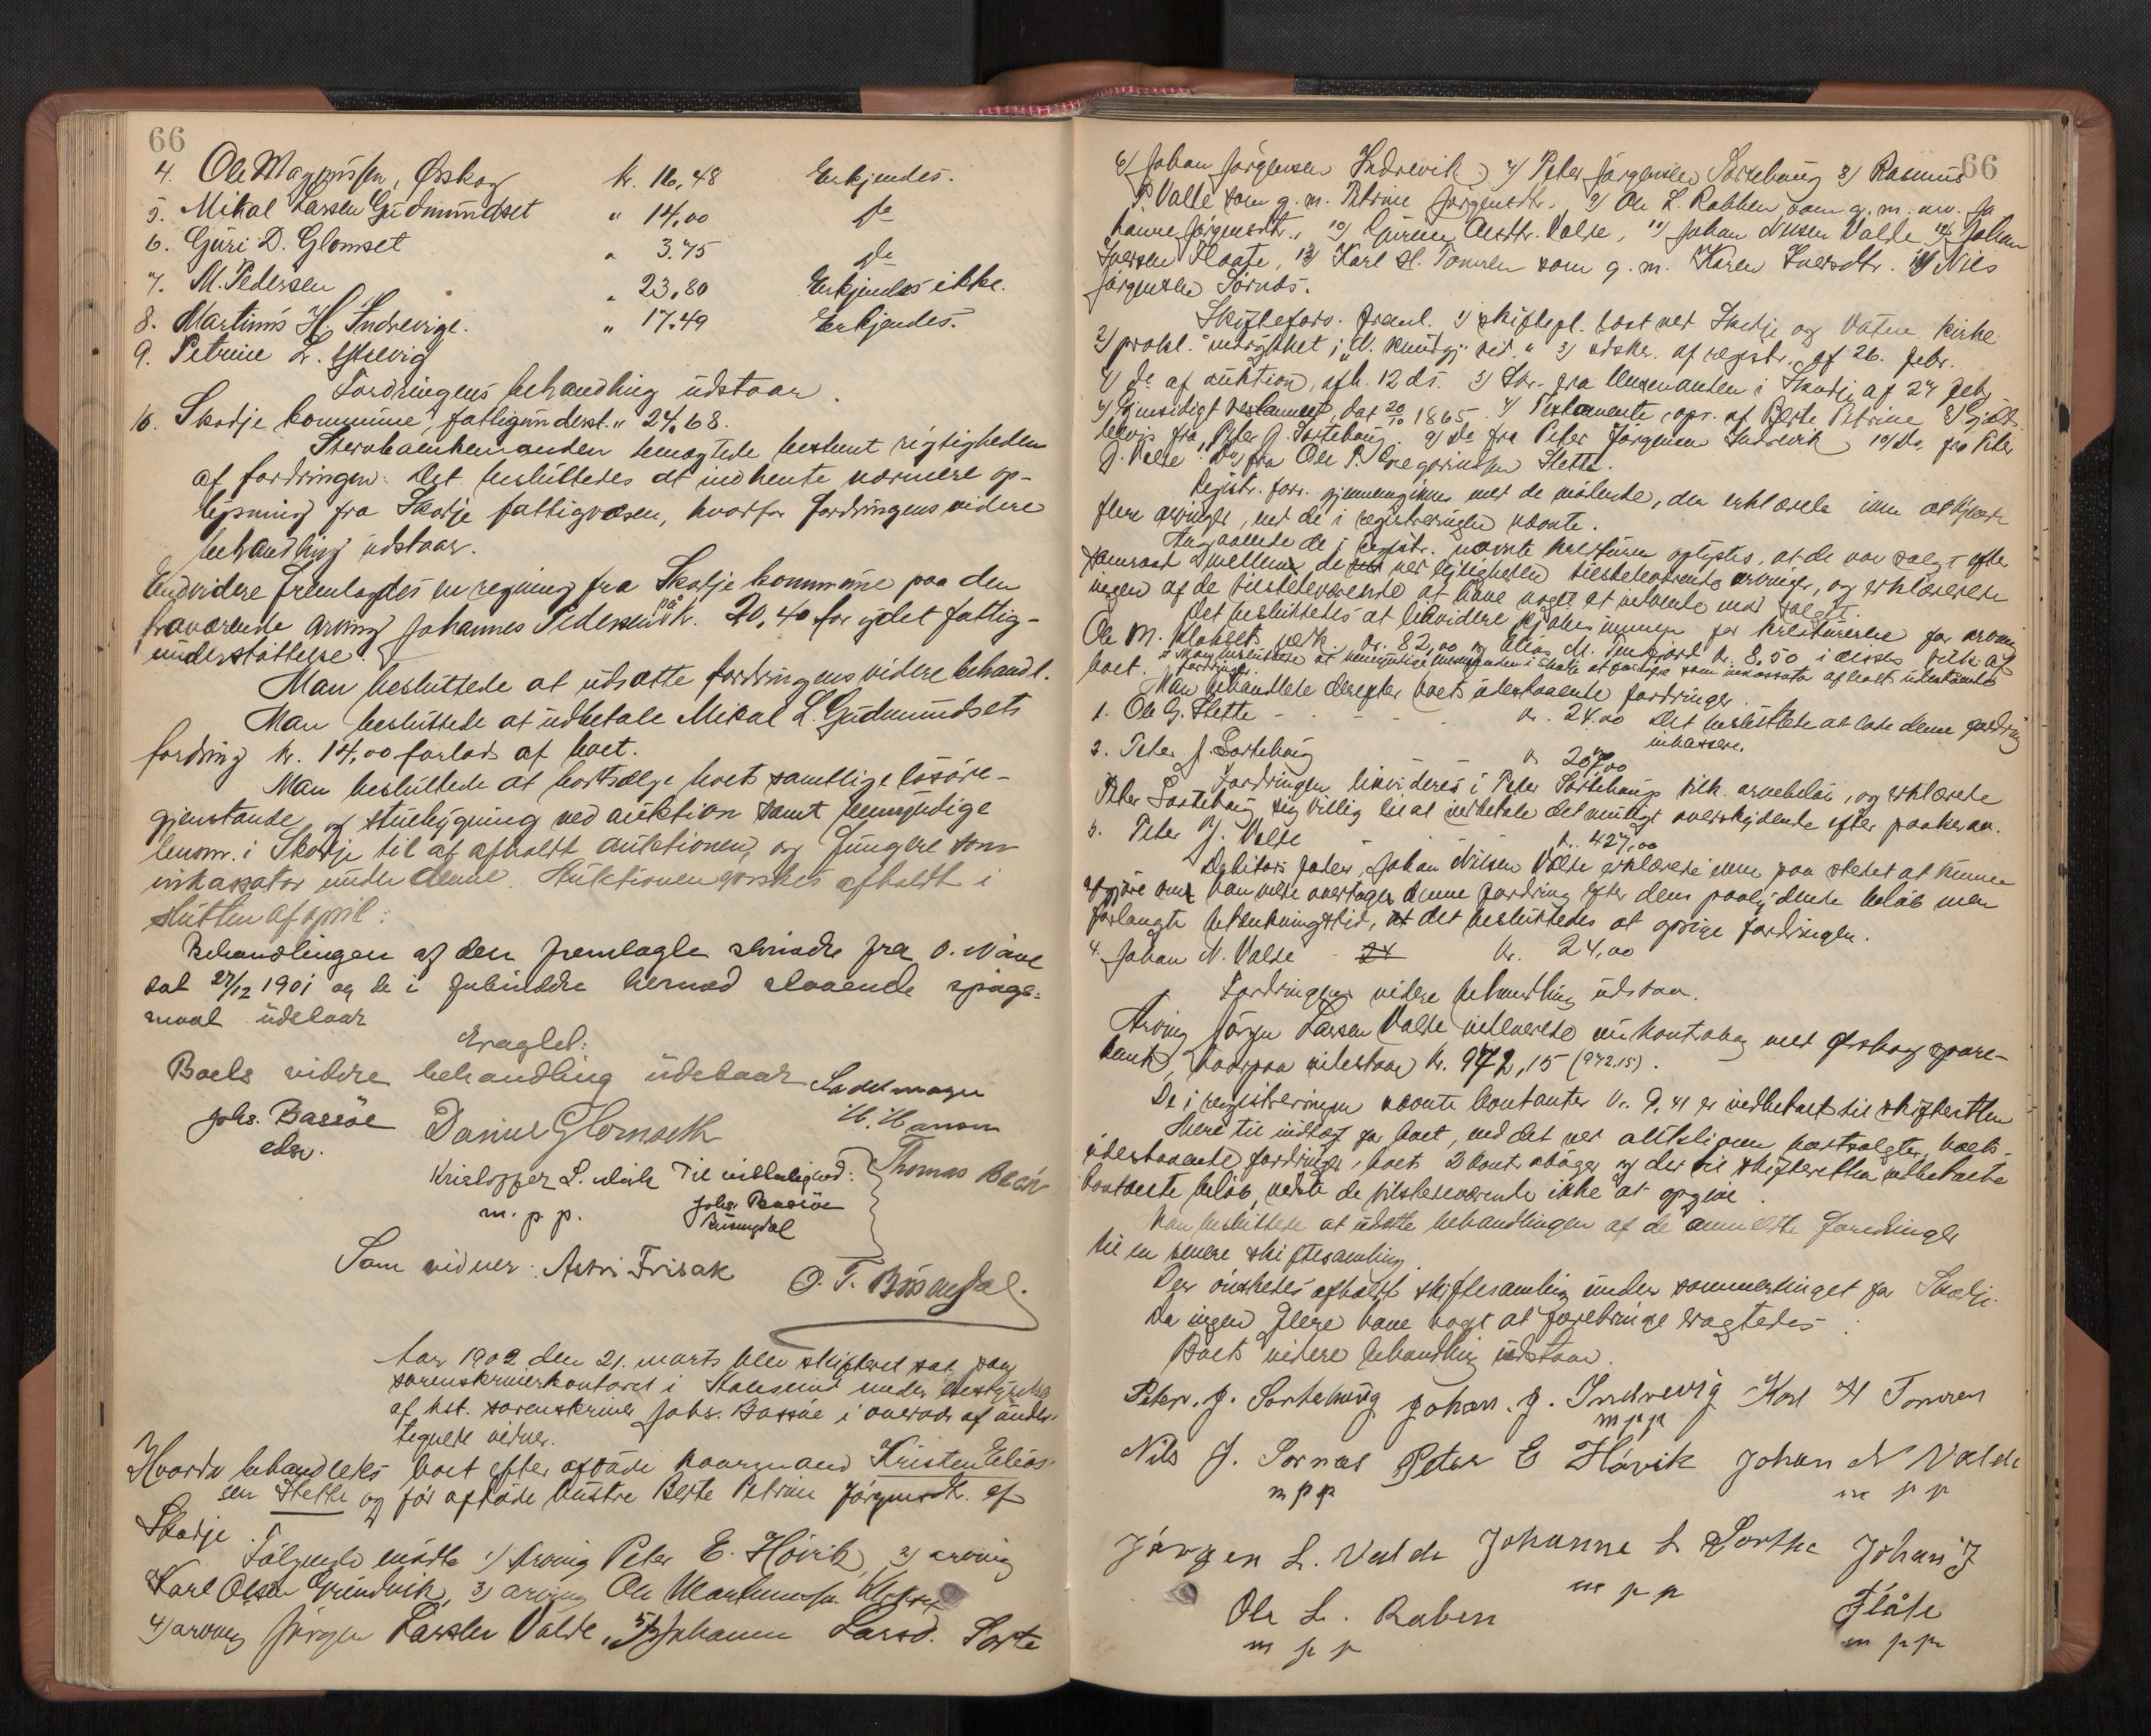 66
4. Ole Magnussen, Ørskog kr. 16,48 Erkjendes.
5. Mikal Larsen Gudmundset " 14,00 do
6. Guri D. Glomset " 3.75 do
7. M. Pedersen " 23,80 Erkjendes ikke.
8. Martinus H. Indrevige. " 17.49 Erkjendes.
9. Petrine L.
Fordringens behandling udstaar.
10. Skodje kommune, fattigunderst. " 24,68.
benægtede bestemt rigtigheden
af fordringen. Det besluttedes at indhente nærmere op-
lysning fra Skodje fattigvæsen, hvorfor fordringens videre
behandling udstaar.
Endvidere fremlagdes en regning fra Skodje kommune paa den
fraværende arving Johannes Pedersen på kr. 20,40 for ydet fattig-
understøttelse.
Man besluttede at udsætte fordringens videre behandl.
Man besluttede at udbetale Mikal L. Gudmundsets
fordring kr. 14,00 forlods af boet.
Man besluttede at bortsælge boets samtlige løsøre-
gjenstande og stuebygning ved auktion samt bemyndige
lensm. i Skodje til at afholdt auktionen, og fungere som
inkassator under denne. Auktionen ønskes afholdt i
slutten af april.
Behandlingen af den fremlagte skrivelse fra O. Nave
dat 27/12 1901 og de i forbindelse hermed staaende spørgs-
maal udstaar
Eragtet:
Boets videre behandling udstaar
Johs. Bassøe Darius Glomseth Sadelmager
edsv. H. Hansen
Kristoffer L. m. p. p. Til vitterlighed: Thomas
Johs. Bassøe
Som vidner: Astri Frisak O. T. Bjørnsdal.
Aar 1902 den 21. marts blev skifteret sat paa
sorenskriverkontoret i Aalesund under bestyrelse
af kst. sorenskriver Johs. Bassøe i overvær af under-
tegnede vidner.
Hvorda behandledes boet efter afdøde kaarmand Kristen Elias-
sen Slette og før afdøde hustru Berte Petrine Jørgensdtr. af
Skodje.
Følgende mødte 1) Arving Peter E. Høvik, 2) arving
Karl Olsen Grindvik, 3) arving Ole Martinussen Klokset
4) arving Jørgen Larssen Valde, 5) Johanne Larsd. Sorte
66
6) Johan Jørgensen Indrevik, 7) Peter Jørgensen Sortehaug 8) Rasmus
P. Valde som g. m. Petrine Jørgensdtr. 9) Ole L. Rabben som g. m. arv. Jo
hanne Jørgensdtr., 10) Gurine Olesdtr. Valde, 11) Johan Nilsen Valde 12) Johan
Iversen Flaate, 13) Karl H. Tomren som g. m. Karen Iversdtr. 14) Nils
Jørgensen Sørnes.
Skifteforv. freml. 1) skiftepl. læst ved Skodje og Vatne kirke
2) prokl. indrykket i "N. kundgj. tid." 3) udskr. af registr. af 26. febr.
4) do af auktion, afh. 12 ds. 5) Skr. fra lensmanden i Skodje af 27 febr.
6) Gjensidigt testament, dat 20/10 1865. 7) Testamente, opr. af Berte Petrine 8) Gjælds-
bevis fra Peter J. Sortehaug. 9) Do fra Peter Jørgensen Indrevik 10) Do fra Peter
J. Valde 11) Do fra Ole P. Gregoriussen Slette.
Registr. forr. gjennemgikkes med de mødende, der erklærede ikke at kjende
flere arvinger, end de i registreringen nævnte.
Angaaende de i registr. nævnte kreaturer oplystes, at de var solgt efter
samraad mellem de ved leiligheden tilstedeværende arvinger, og erklærede
ingen af de tilstedeværende at have noget at indvende mod salget.
Det besluttedes at likvidere kjøbesummen for kreaturerne for arving
Ole M. Kloksets vedk. kr. 82,00 og Elias M. Tenfjord kr. 8,50 i disses tilk. af
boet. Man besluttede at bemyndige lensmanden i Skodje at fungere som inkassator af boets udestaaende
fordringer.
Man behandlede derefter boets udestaaende fordringer.
1. Ole G. Slette kr. 24.00 Det besluttede at lade denne fordring
inkassere.
2. Peter J. Sortehaug kr. 207,00
Fordringen likvideres i Peter Sortehaugs tilk. arvebeløb, og erklærede
Peter Sortehaug sig villig til at indbetale det muligt overskydende efter paakrav.
3. Peter J. Valde kr. 427,00
Debitors fader, Johan Nilsen Valde erklærede ikke paa stedet at kunne
afgjøre om han vilde overtage denne fordring efter dens paalydende beløb men
forlangte betænkningstid, at det besluttedes at opsige fordringen.
4. Johan N. Valde - 24 kr. 24,00
Fordringens videre behandling udstaar.
Arving Jørgen Larsen Valde indleverede en kontrabog med Ørskog spare-
bank, hvorpaa indestaar kr. 972,15 (972.15).
De i registreringen nævnte kontanter kr. 9,41 er indbetalt til skifteretten
Mere til indtægt for boet, end det ved auktionen bortsolgte, boets
udestaaende fordringer, boets 2 kontrabøger og der til skifteretten indbetalte
kontante beløb, vidste de tilstedeværende ikke at opgive.
Man besluttede at udsætte behandlingen af de anmeldte fordringer
til en senere skiftesamling.
Der ønskedes afholdt skiftesamling under sommertinget for Skodje.
Da ingen flere have noget at forebringe eragtedes:
Boets videre behandling udstaar.
Peter. J. Sortehaug Johan. J. Indrevig Karl H Tomren
m p p
Nils J. Sornes Peter E Høvik Johan N Valde
m p p m p p
Jørgen L. Valde Johanne L Sorthe Johan J
m p p Flåte
Ole L. Raben m p p
m p p